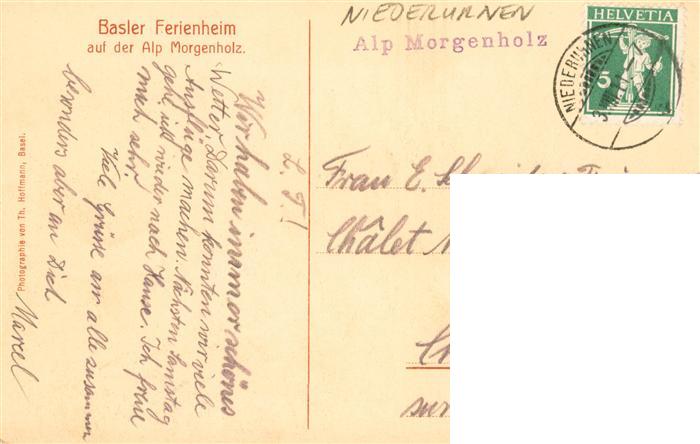 Basler Ferienheim
auf der Alp Morgenholz.
NIEDERURNEN
Alp Morgenholz
HELVETIA
5
NIEDERURNEN
L. T.!
Wir haben immer schönes
Wetter, Darum konnten wir viele
Ausflüge machen. Nächsten Samstag
geht's wieder nach Hause. Ich freue
mich sehr!
Viele Grüsse an alle zusammen
besonders aber an Dich
Marcel
Frau E.
Châlet
sur
Photographie von Th. Hoffmann, Basel.